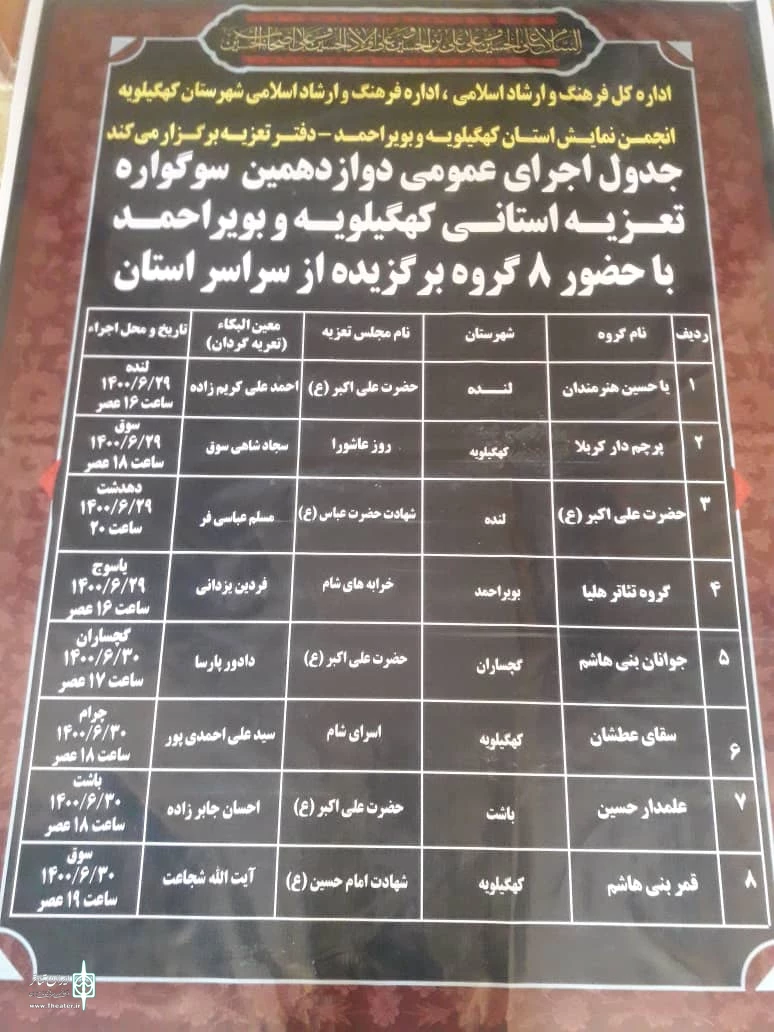 السلام علی الحسین و علی علی بن الحسین و علی اولاد الحسین و علی اصحاب الحسین
اداره کل فرهنگ و ارشاد اسلامی ، اداره فرهنگ و ارشاد اسلامی شهرستان کهگیلویه
انجمن نمایش استان کهگیلویه و بویراحمد - دفتر تعزیه برگزار می کند
جدول اجرای عمومی دوازدهمین سوگواره
تعزیه استانی کهگیلویه و بویراحمد
با حضور ۸ گروه برگزیده از سراسر استان
ردیف نام گروه شهرستان نام مجلس تعزیه معین البکاء (تعریه گردان) تاریخ و محل اجراء
۱ یا حسین هنرمندان لنده حضرت علی اکبر (ع) احمد علی کریم زاده لنده ۱۴۰۰/۶/۲۹ ساعت ۱۶ عصر
۲ پرچم دار کربلا کهگیلویه روز عاشورا سجاد شاهی سوق سوق ۱۴۰۰/۶/۲۹ ساعت ۱۸ عصر
۳ حضرت علی اکبر (ع) لنده شهادت حضرت عباس (ع) مسلم عباسی فر دهدشت ۱۴۰۰/۶/۲۹ ساعت ۲۰
۴ گروه تئاتر هلیا بویراحمد خرابه های شام فردین یزدانی یاسوج ۱۴۰۰/۶/۲۹ ساعت ۱۶ عصر
۵ جوانان بنی هاشم گچساران حضرت علی اکبر (ع) دادور پارسا گچساران ۱۴۰۰/۶/۳۰ ساعت ۱۷ عصر
۶ سقای عطشان کهگیلویه اسرای شام سید علی احمدی پور چرام ۱۴۰۰/۶/۳۰ ساعت ۱۸ عصر
۷ علمدار حسین باشت حضرت علی اکبر (ع) احسان جابر زاده باشت ۱۴۰۰/۶/۳۰ ساعت ۱۸ عصر
۸ قمر بنی هاشم کهگیلویه شهادت امام حسین (ع) آیت الله شجاعت سوق ۱۴۰۰/۶/۳۰ ساعت ۱۹ عصر
ایران تئاتر
www.theater.ir